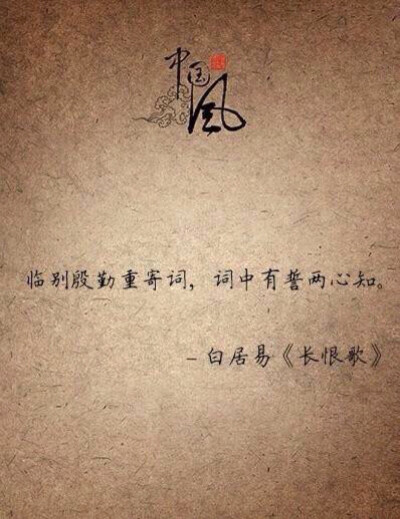 中国风
临别殷勤重寄词，词中有誓两心知。
－白居易《长恨歌》